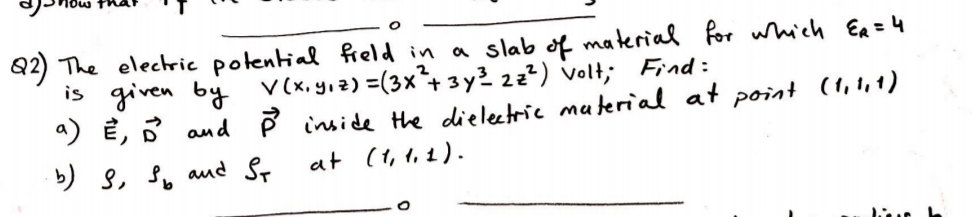 d) Show that if
Q2) The electric potential field in a slab of material for which ε_R = 4
is given by V(x, y, z) = (3x² + 3y³ - 2z²) Volt; Find:
a) E⃗, D⃗ and P⃗ inside the dielectric material at point (1, 1, 1)
b) ρ, ρ_b and ρ_T at (1, 1, 1).